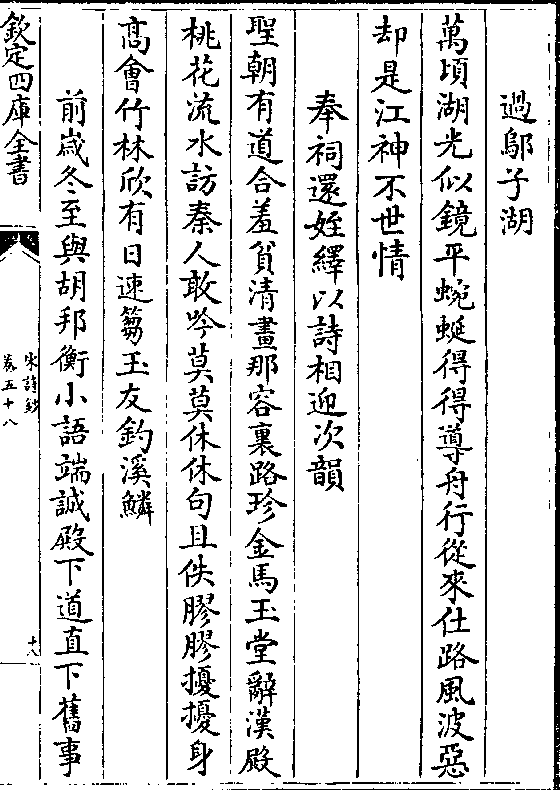 過鄔子湖
萬頃湖光似鏡平蜿蜒得得導舟行從來仕路風波惡
却是江神不世情
奉祠還姪繹以詩相迎次韻
聖朝有道合羞貧清晝那容裹路珍金馬玉堂辭漢殿
桃花流水訪秦人敢吟莫莫休休句且佚膠膠擾擾身
髙㑹竹林欣有日速篘玉友釣溪鱗
前歳冬至與胡邦衡小語端誠殿下道直下舊事
欽定四庫全書
宋詩鈔
卷五十八
十八